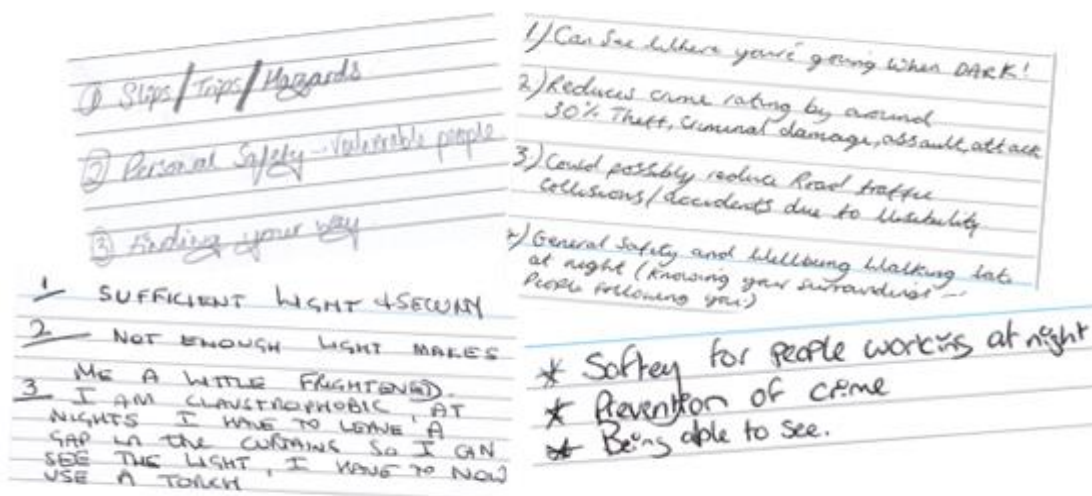 ① Slips/Trips/Hazards
② Personal Safety - Vulnerable people
③ Finding your way
1 SUFFICIENT LIGHT & SECURITY
2 NOT ENOUGH LIGHT MAKES
ME A LITTLE FRIGHTENED.
3 I AM CLAUSTROPHOBIC, AT
NIGHTS I HAVE TO LEAVE A
GAP IN THE CURTAINS SO I CAN
SEE THE LIGHT, I HAVE TO NOW
USE A TORCH
1) Can See Where you're going when DARK!
2) Reduces crime rating by around
30% Theft, Criminal damage, assault, attack
3) Could possibly reduce Road traffic
collisions/accidents due to
4) General Safety and Wellbeing Walking late
at night (knowing your surroundings --
People following you)
* Saftey for people working at night
* Prevention of crime
* Being able to see.